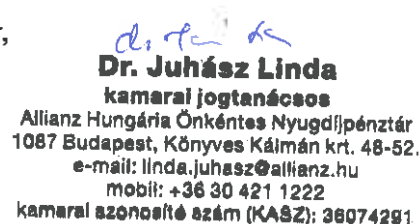 Dr. Juhász Linda
kamarai jogtanácsos
Allianz Hungária Önkéntes Nyugdíjpénztár
1087 Budapest, Könyves Kálmán krt. 48-52.
e-mail: linda.juhasz@allianz.hu
mobil: +36 30 421 1222
kamarai azonosító szám (KASZ): 36074291